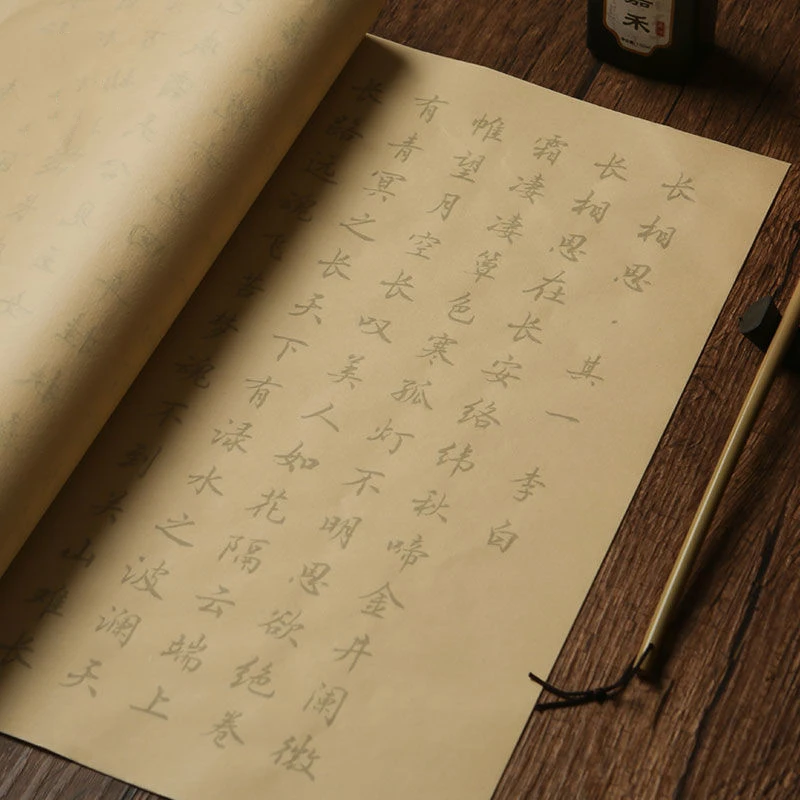 长相思·其一 李白
长相思在长安络纬秋啼金井阑微
霜凄凄簟色寒孤灯不明思欲绝卷
帷望月空长叹美人如花隔云端上
有青冥之长天下有渌水之波澜天
长路远魂飞苦梦魂不到关山难长
嘉禾